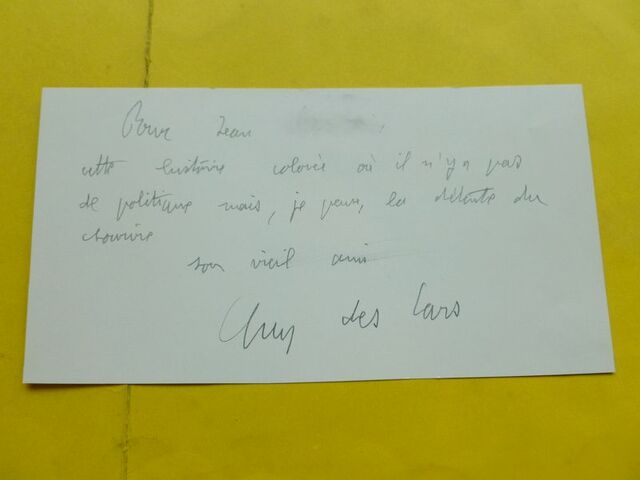 Pour Jean
cette histoire colorée où il n'y a pas
de politique mais, je pense, la détente du
sourire
son vieil ami
Guy des Cars